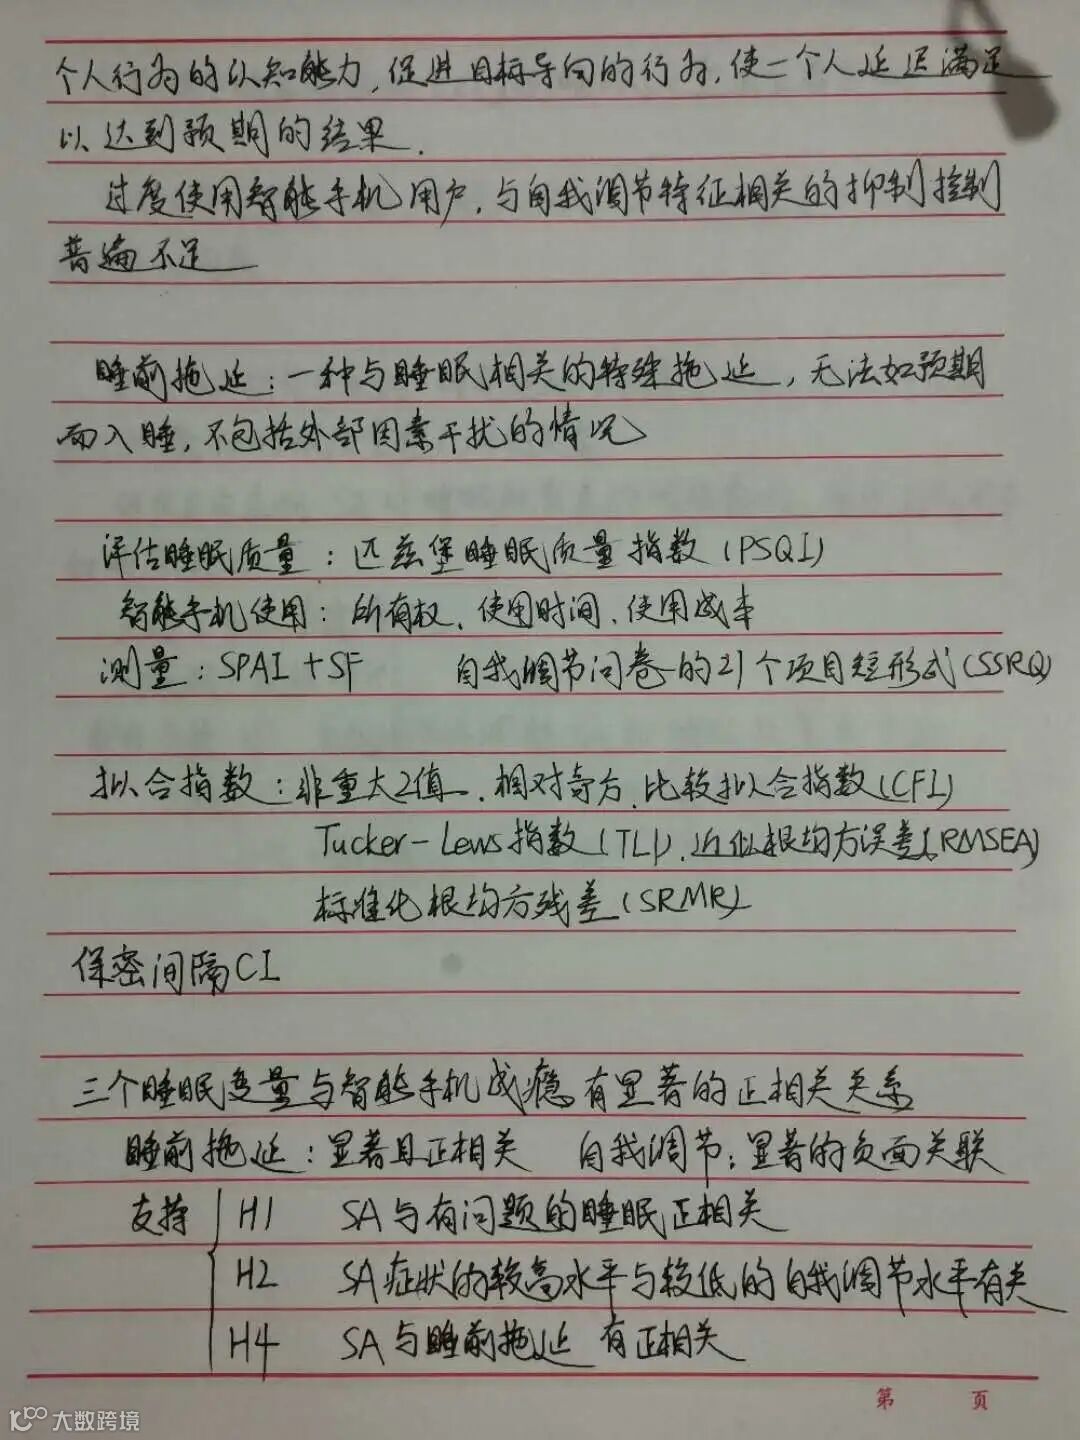 个人行为的认知能力,促进目标导向的行为,使一个人延迟满足
以达到预期的结果.
过度使用智能手机用户,与自我调节特征相关的抑制控制
普遍不足
睡前拖延:一种与睡眠相关的特殊拖延,无法如预期
而入睡,不包括外部因素干扰的情况
评估睡眠质量:匹兹堡睡眠质量指数(PSQI)
智能手机使用:所有权、使用时间、使用成本
测量:SPAI+SF 自我调节问卷的21个项目短形式(SSRQ)
拟合指数:非重大2值、相对奇方、比较拟合指数(CFI)
Tucker-Lews指数(TLI)、近似根均方误差(RMSEA)
标准化根均方残差(SRMR)
保密间隔CI
三个睡眠变量与智能手机成瘾有显著的正相关关系
睡前拖延:显著且正相关 自我调节:显著的负面关联
支持 H1 SA与有问题的睡眠正相关
H2 SA症状的较高水平与较低的自我调节水平有关
H4 SA与睡前拖延有正相关
第 页
大数跨境